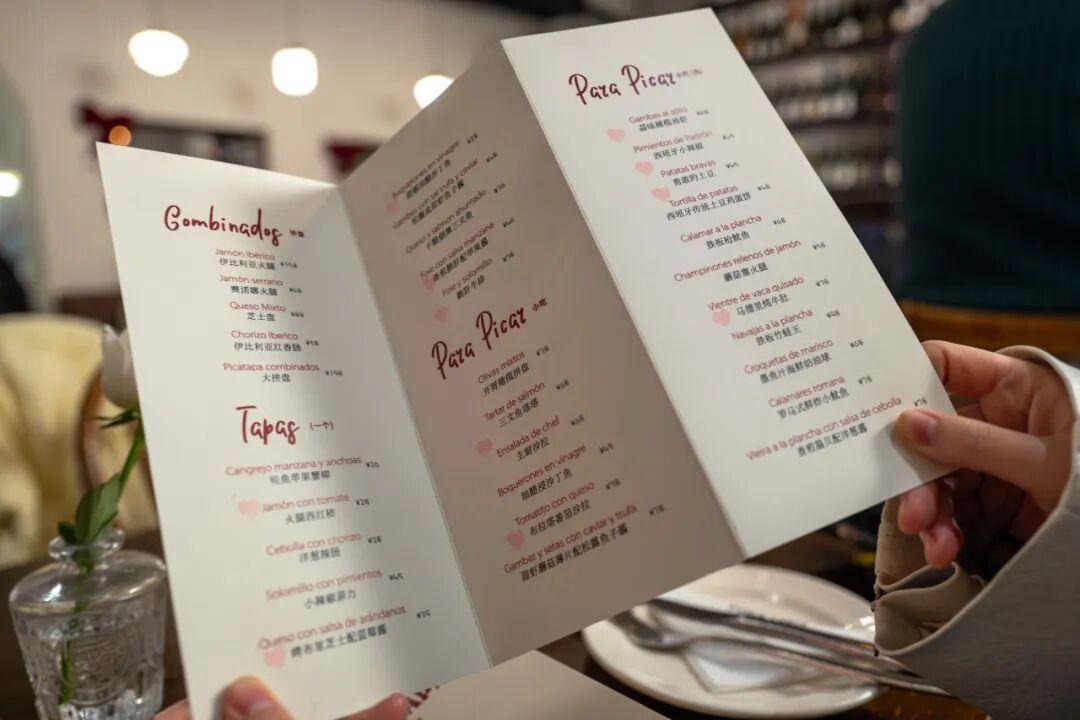 Combinados 拼盘
Jamón Iberico
伊比利亚火腿
Jamón serrano
赛诺娜火腿
Queso Mixto
芝士盘
Chorizo Iberico
伊比利亚红香肠
Picatapa combinados ¥198
大拼盘
Tapas (一个)
Cangrejo manzana y anchoas ¥20
鳀鱼苹果蟹柳
Jamón con tomate ¥28
火腿西红柿
Cebolla con chorizo ¥28
洋葱辣肠
Solomillo con pimientos ¥45
小辣椒菲力
Queso con salsa de arándanos ¥39
烤布里芝士配蓝莓酱
Boquerones en vinagre ¥28
Gambas con sal trufa y caviar
Queso y salmon ahumado
Foie con salsa manzana
香煎鹅肝配苹果酱
Foie y solomillo ¥78
鹅肝牛排
Para Picar 小吃
Olivas mixtos ¥38
开胃橄榄拼盘
Tartar de salmón
三文鱼塔塔
Ensalada de chef
主厨沙拉
Boquerones en vinagre
油醋浸沙丁鱼
Tomatito con queso ¥78
布拉塔番茄沙拉
Gambas y setas con caviar y trufa ¥78
甜虾蘑菇薄片配松露鱼子酱
Para Picar
Gambas al ajillo
蒜味橄榄油虾
Pimientos de Padrón
西班牙小辣椒
Patatas bravas
勇敢的土豆
Tortilla de patatas
西班牙传统土豆鸡蛋饼
Calamar a la plancha
铁板枪鱿鱼
Champinones relenos de jamón
蘑菇塞火腿
Vientre de vaca quisado ¥78
马德里炖牛肚
Navajas a la plancha ¥98
铁板竹蛏王
Croquetas de marisco
墨鱼汁海鲜奶油球
Calamares romana ¥78
罗马式鲜炸小鱿鱼
Vieira a la plancha con salsa de cebolla ¥78
香煎扇贝配洋葱酱